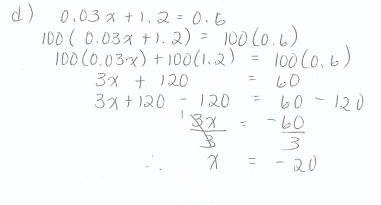 d) 0.03x + 1.2 = 0.6
100 ( 0.03x + 1.2 ) = 100 (0.6)
100 (0.03x) + 100(1.2) = 100 (0.6)
3x + 120 = 60
3x + 120 - 120 = 60 - 120
1 3x/3 = -60/3
∴ x = -20